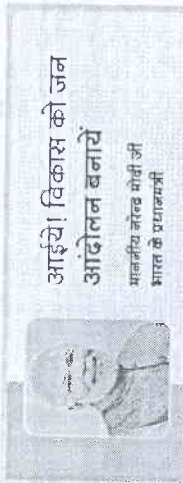 आईये! विकास को जन
आंदोलन बनायें
माननीय नरेन्द्र मोदी जी
भारत के प्रधानमंत्री